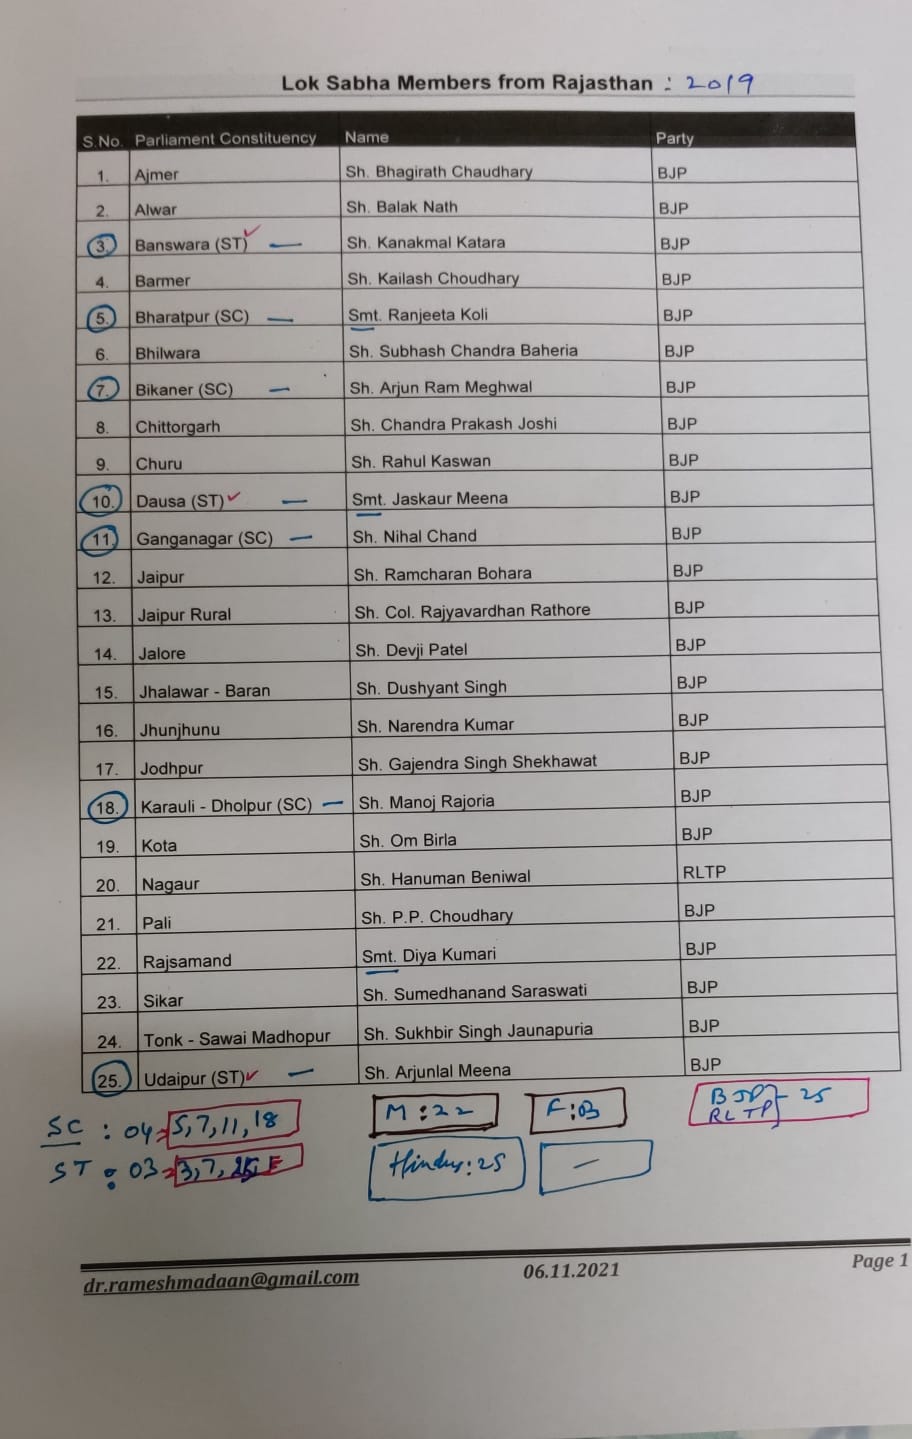 Lok Sabha Members from Rajasthan : 2019
S.No. Parliament Constituency Name Party
1. Ajmer Sh. Bhagirath Chaudhary BJP
2. Alwar Sh. Balak Nath BJP
3. Banswara (ST) Sh. Kanakmal Katara BJP
4. Barmer Sh. Kailash Choudhary BJP
5. Bharatpur (SC) Smt. Ranjeeta Koli BJP
6. Bhilwara Sh. Subhash Chandra Baheria BJP
7. Bikaner (SC) Sh. Arjun Ram Meghwal BJP
8. Chittorgarh Sh. Chandra Prakash Joshi BJP
9. Churu Sh. Rahul Kaswan BJP
10. Dausa (ST) Smt. Jaskaur Meena BJP
11. Ganganagar (SC) Sh. Nihal Chand BJP
12. Jaipur Sh. Ramcharan Bohara BJP
13. Jaipur Rural Sh. Col. Rajyavardhan Rathore BJP
14. Jalore Sh. Devji Patel BJP
15. Jhalawar - Baran Sh. Dushyant Singh BJP
16. Jhunjhunu Sh. Narendra Kumar BJP
17. Jodhpur Sh. Gajendra Singh Shekhawat BJP
18. Karauli - Dholpur (SC) Sh. Manoj Rajoria BJP
19. Kota Sh. Om Birla BJP
20. Nagaur Sh. Hanuman Beniwal RLTP
21. Pali Sh. P.P. Choudhary BJP
22. Rajsamand Smt. Diya Kumari BJP
23. Sikar Sh. Sumedhanand Saraswati BJP
24. Tonk - Sawai Madhopur Sh. Sukhbir Singh Jaunapuria BJP
25. Udaipur (ST) Sh. Arjunlal Meena BJP
SC : 04 5,7,11,18 M:22 F:03 BJP RLTP - 25
ST : 03 3,7, Hindus:25 -
dr.rameshmadaan@gmail.com 06.11.2021 Page 1